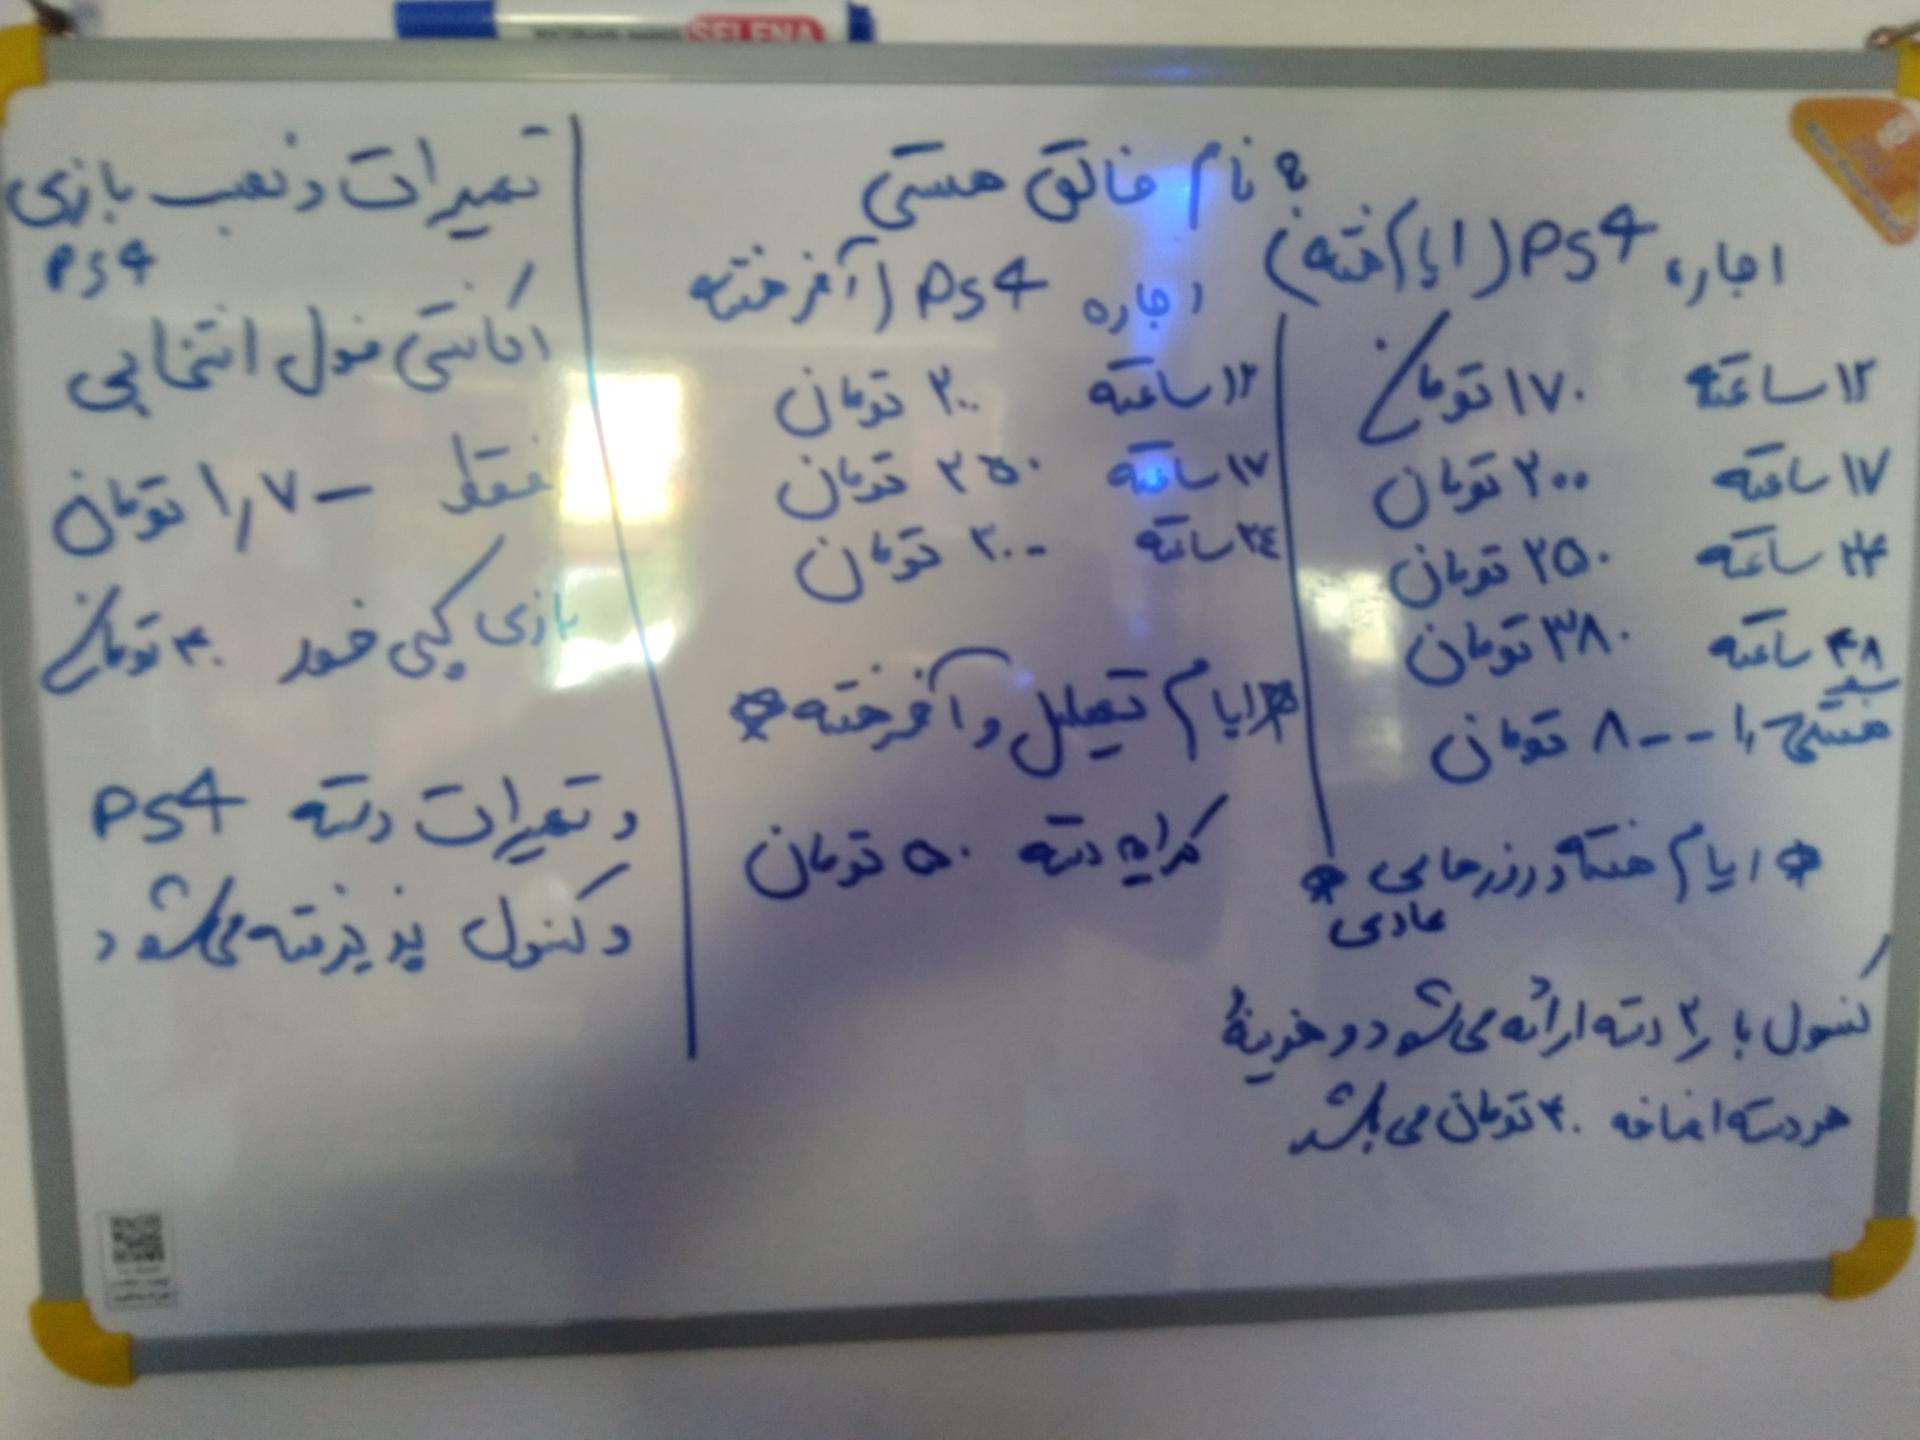 SELENA
به نام خالق هستی
اجاره PS4 (ایام هفته)
۱۲ ساعته ۱۷۰ تومان
۱۷ ساعته ۲۰۰ تومان
۲۴ ساعته ۲۵۰ تومان
۴۸ ساعته ۳۸۰ تومان
هفتگی ۱٫۸۰۰ تومان
* ایام هفته و روزهایی *
عادی
کنسول با ۲ دسته ارائه می‌شود و هزینهٔ
هر دسته اضافه ۴۰ تومان می باشد
اجاره PS4 (آخر هفته
۱۲ ساعته ۲۰۰ تومان
۱۷ ساعته ۲۵۰ تومان
۲٤ ساعته ۳۰۰ تومان
* ایام تعطیل و آخر هفته *
کرایه دسته ۵۰ تومان
تعمیرات و نصب بازی
PS4
اکانتی فول انتخابی
فقط ۱٫۷۰۰ تومان
بازی کپی خور ۴۰ تومان
و تعمیرات دسته PS4
و کنسول پذیرفته می‌شود